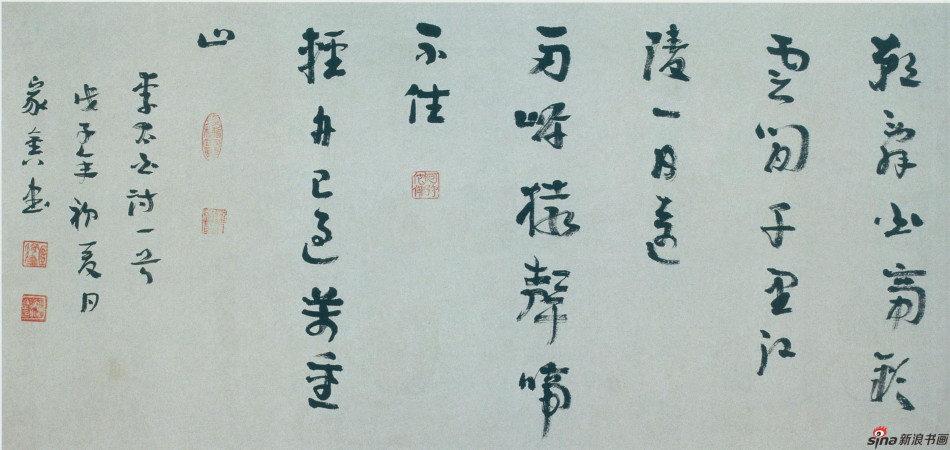 朝辞白帝彩
雲間千里江
陵一日還
两岸猿聲啼
不住
輕舟已過萬重
山
李太白詩一首
戊子年初夏月
家書
sina新浪书画